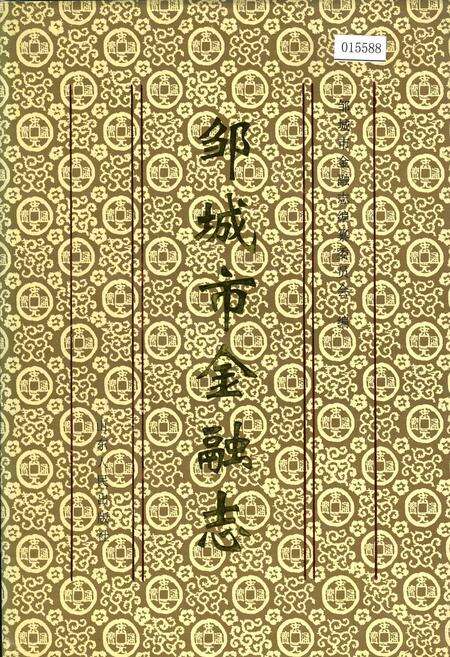 015588
邹城市金融志编纂委员会 编
邹城市金融志
山东人民出版社